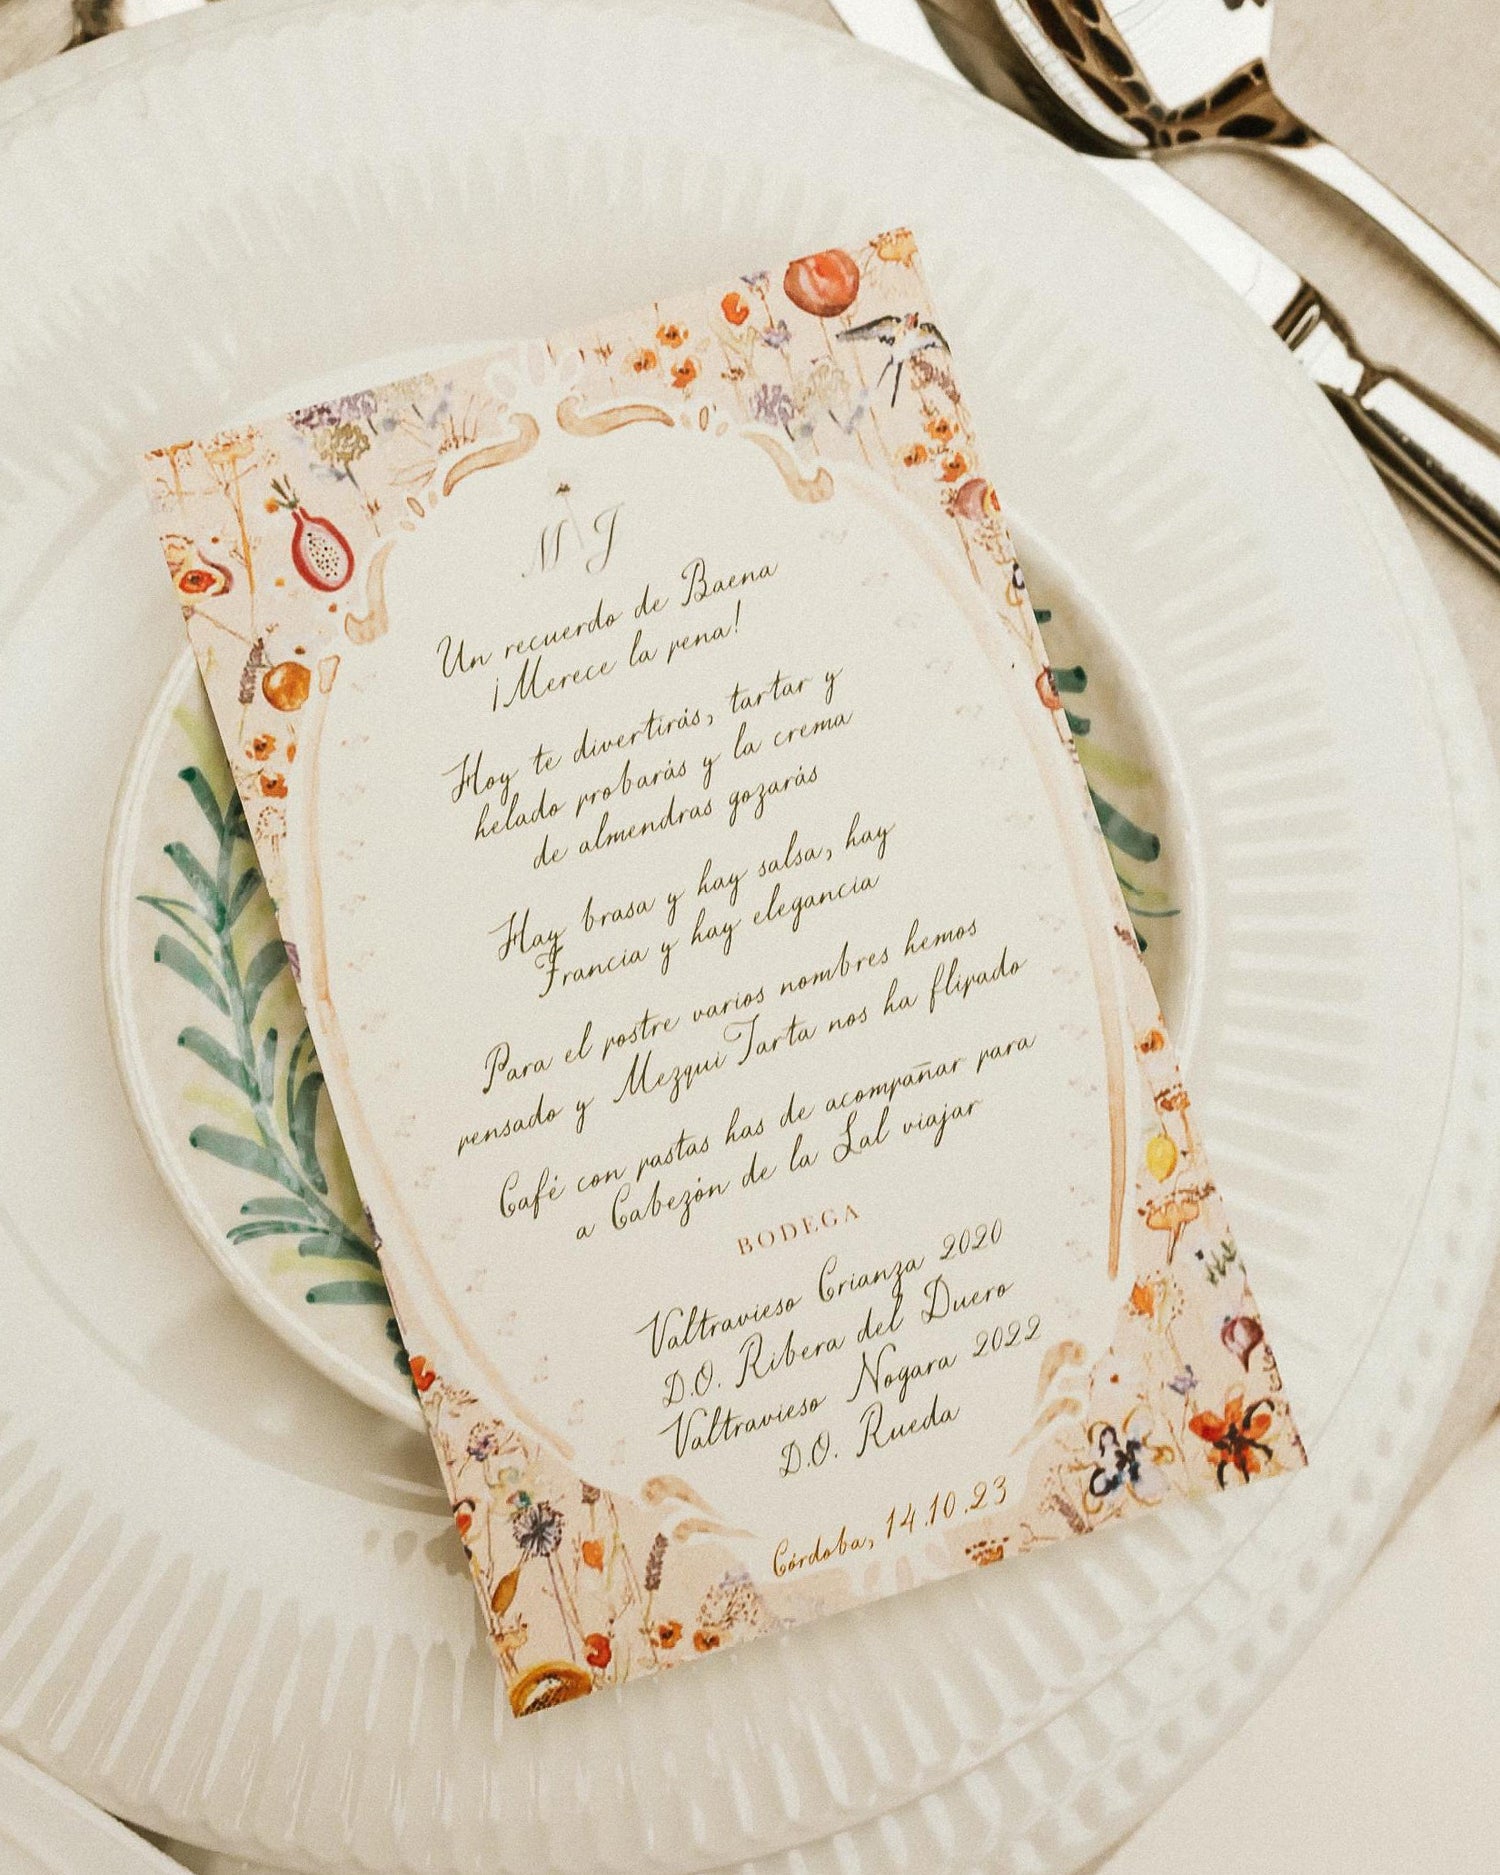 M J
Un recuerdo de Baena
¡Merece la pena!
Hoy te divertirás, tartar y
helado probarás y la crema
de almendras gozarás
Hay brasa y hay salsa, hay
Francia y hay elegancia
Para el postre varios nombres hemos
pensado y MezquiTarta nos ha flipado
Café con pastas has de acompañar para
a Cabezón de la Sal viajar
BODEGA
Valtravieso Crianza 2020
D.O. Ribera del Duero
Valtravieso Nogara 2022
D.O. Rueda
Córdoba, 14.10.23